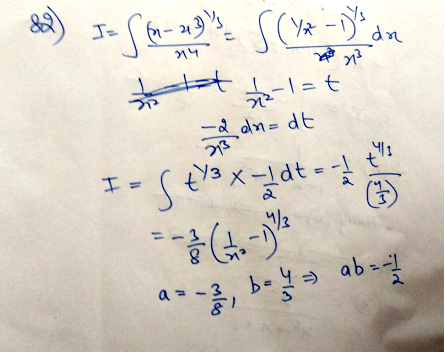 82) I = ∫ (x - x^3)^{1/3} / x^4 = ∫ (1/x^2 - 1)^{1/3} / x^3 dx
1/x^2 - 1 = t
-2/x^3 dx = dt
I = ∫ t^{1/3} × -1/2 dt = -1/2 t^{4/3} / (4/3)
= -3/8 (1/x^2 - 1)^{4/3}
a = -3/8, b = 4/3 ⇒ ab = -1/2